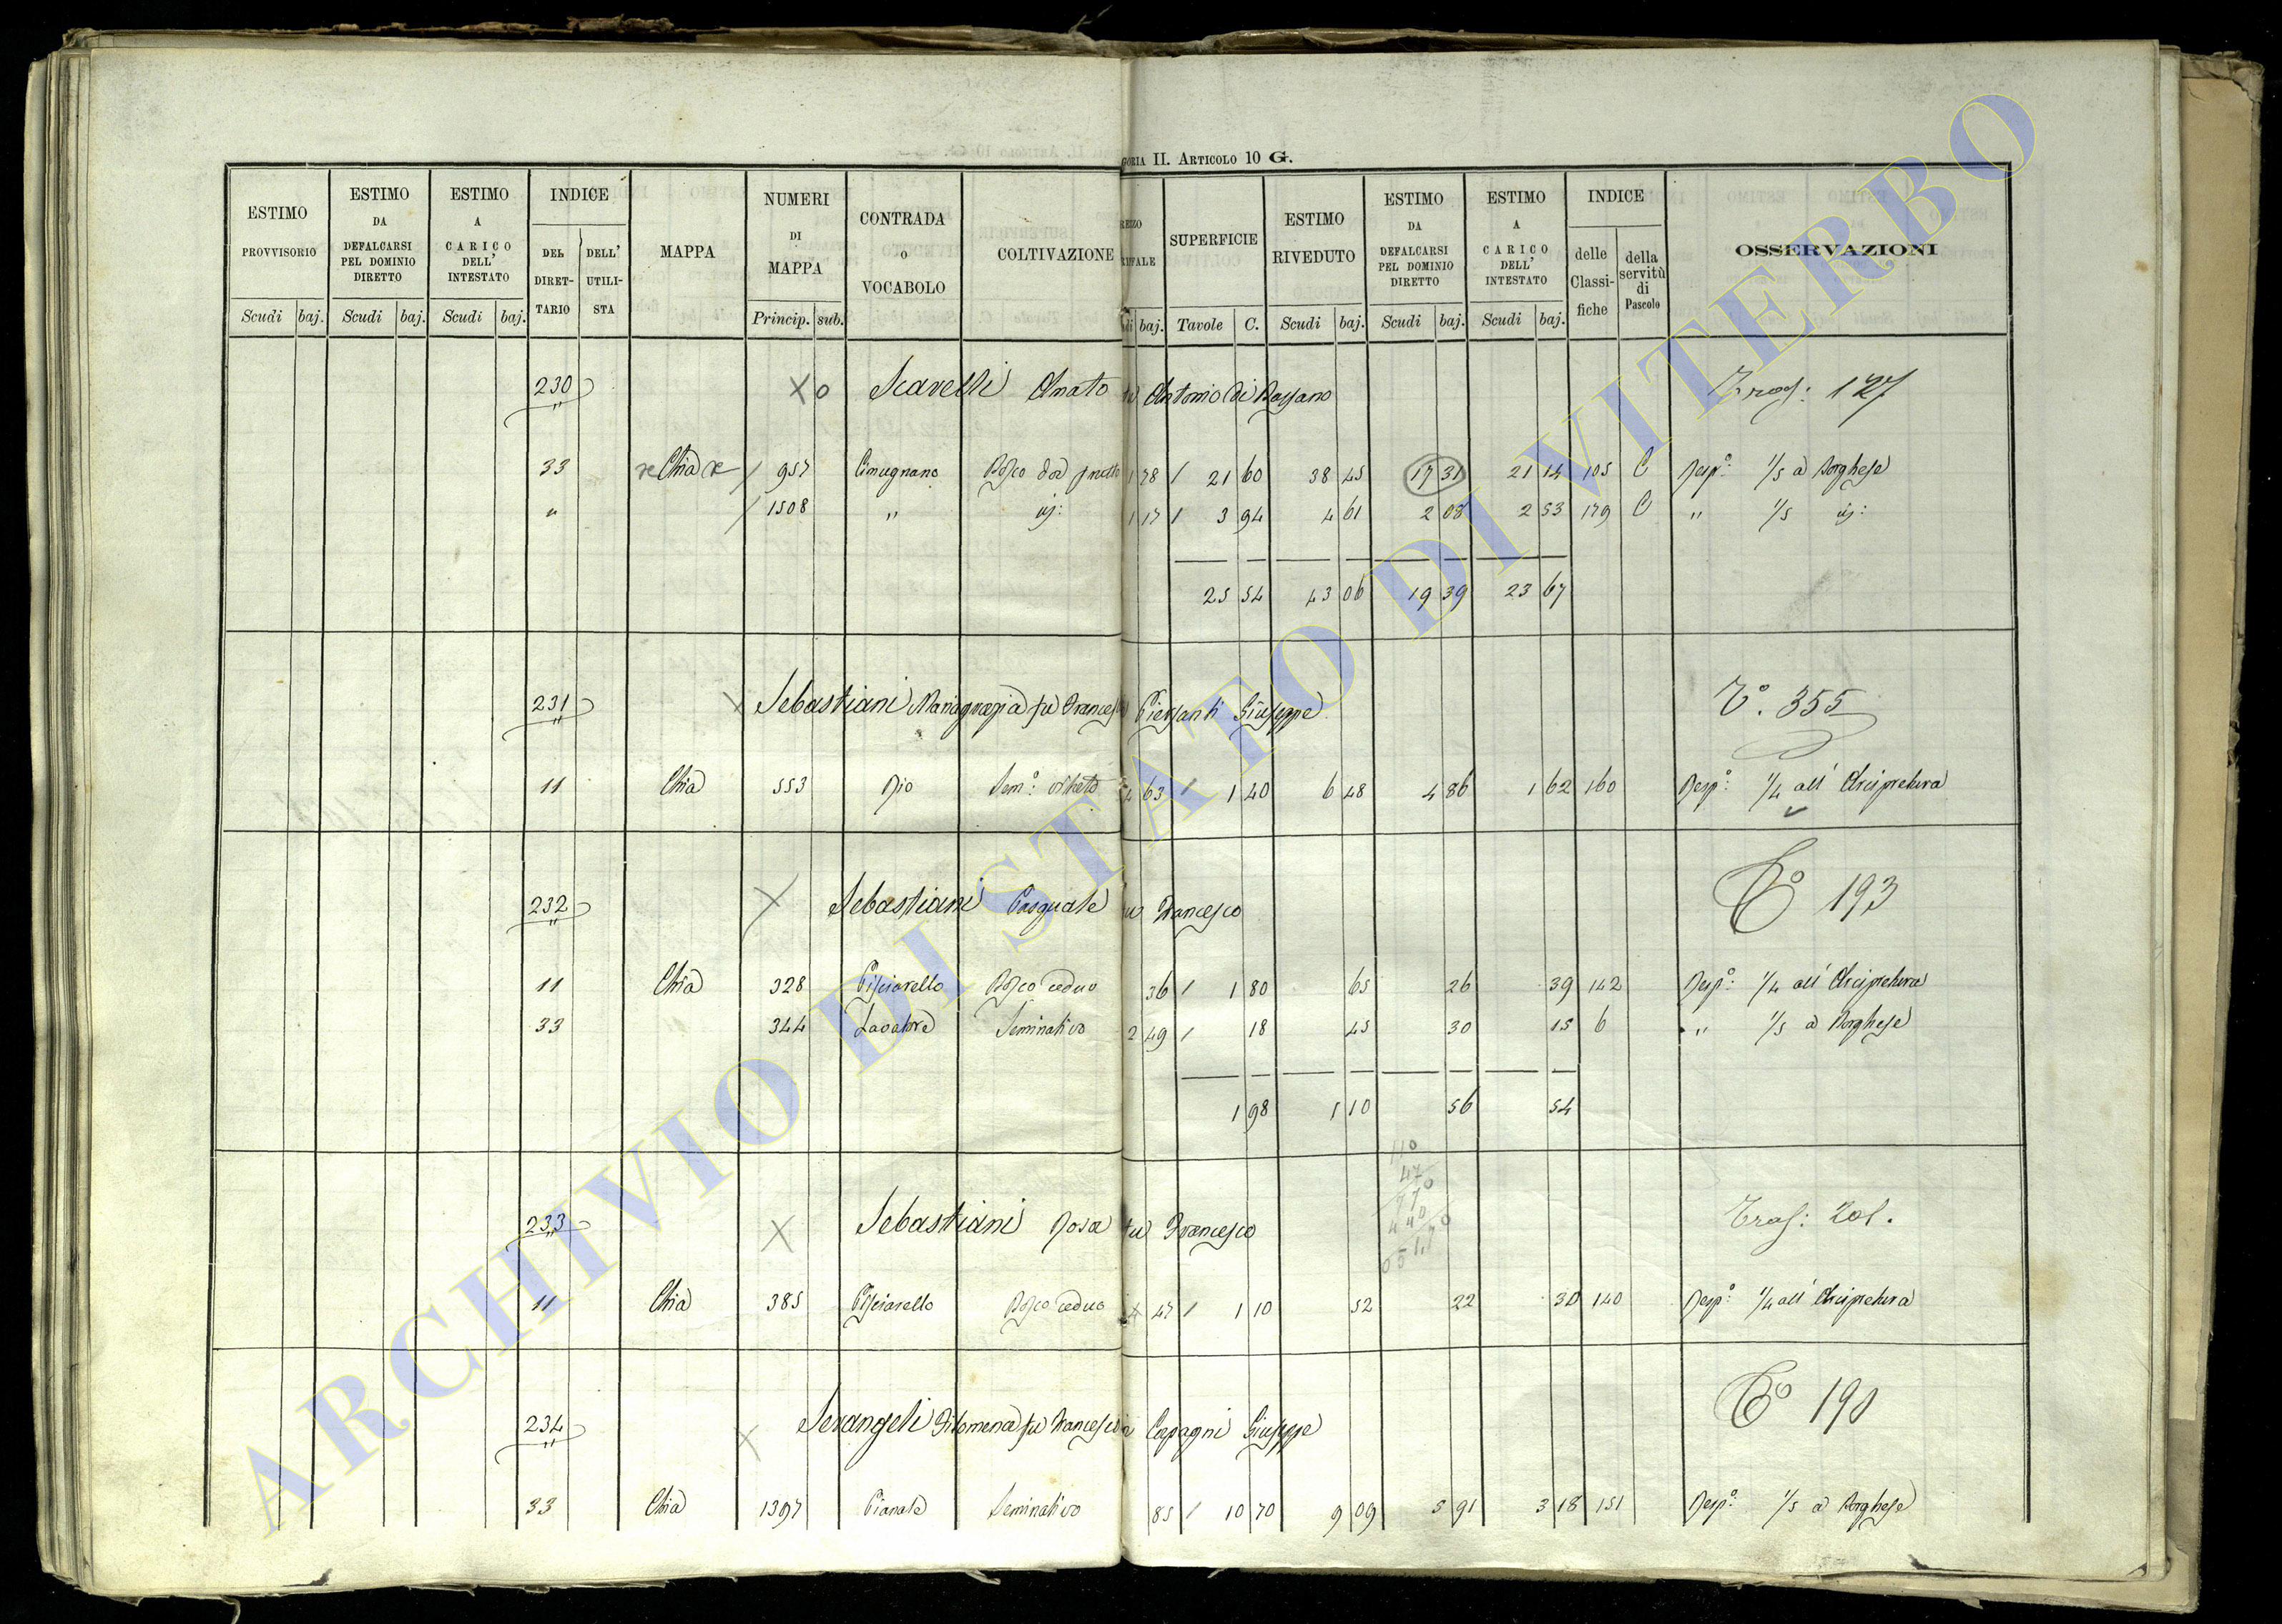 GORIA II. ARTICOLO 10 G.
ESTIMO PROVVISORIO | ESTIMO DA DEFALCARSI PEL DOMINIO DIRETTO | ESTIMO A CARICO DELL' INTESTATO | INDICE DEL DIRETTARIO | DELL' UTILISTA | MAPPA | NUMERI DI MAPPA | CONTRADA O VOCABOLO | COLTIVAZIONE | SUPERFICIE | ESTIMO RIVEDUTO | ESTIMO DA DEFALCARSI PEL DOMINIO DIRETTO | ESTIMO A CARICO DELL' INTESTATO | INDICE delle Classifiche | della servitù di Pascolo | OSSERVAZIONI
Scudi baj. Scudi baj. Scudi baj. Princip. sub. baj. Tavole C. Scudi baj. Scudi baj. Scudi baj.
230 X o Scarelli Amato fu Antonio di Bassano Tras: 127
33 Chia 957 Cimegnano Bosco da 1 78 / 21 60 38 45 17 31 21 14 105 C Resp: 1/5 a Borghese
" / 1508 " id: 1 17 / 3 94 4 61 2 08 2 53 179 C " 1/5 id:
25 54 43 06 19 39 23 67
231 X Sebastiani Mariagrazia fu Francesco Piersanti Giuseppe T° 355
11 Chia 553 Rio Sem: vitato 4 63 / 1 40 6 48 4 86 1 62 160 Resp: 1/4 all' Arcipretura
232 X Sebastiani Pasquale fu Francesco T° 193
11 Chia 328 Pisciarello Bosco ceduo 36 / 1 80 65 26 39 142 Resp: 1/4 all' Arcipretura
33 344 Lavatore Seminativo 2 49 / 18 45 30 15 6 " 1/5 a Borghese
1 98 1 10 56 54
110
47
770
440
51,70
233 X Sebastiani Rosa fu Francesco Tras: 201.
11 Chia 385 Pisciarello Bosco ceduo 47 / 1 10 52 22 30 140 Resp: 1/4 all' Arcipretura
234 X Serangeli Filomena fu Francesco in Capagni Giuseppe T° 190
33 Chia 1397 Pianale Seminativo 85 / 10 70 9 09 5 91 3 18 151 Resp: 1/5 a Borghese
ARCHIVIO DI STATO DI VITERBO